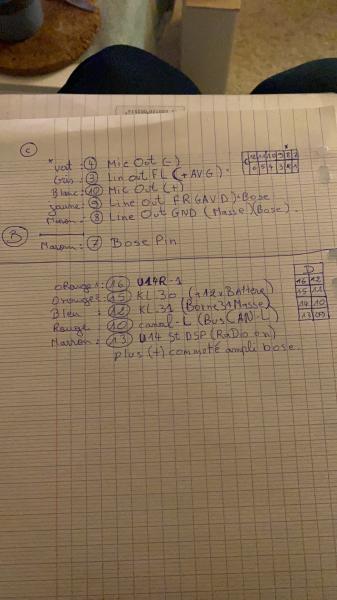 C
* vert : 4 Mic Out (-)
Gris : 3 Lin out FL (+AVG).
Blanc : 10 Mic Out (+)
Jaune : 9 Line Out FR (AVD)+Bose
Marron : 8 Line Out GND (Masse)(Bose).
B
Marron : 7 Bose Pin
D
ORange : 16 U14R-1
Drouge : 15 KL.30 (+12v BAttere)
Bleu : 12 KL.31 (Borne 31 Masse)
Rouge 10 canal-L (Bus CAN-L)
Marron : 13 U14 St DSP (RaDio on)
plus (+) commuté ampli bose.
16 12
15 11
14 10
13 09